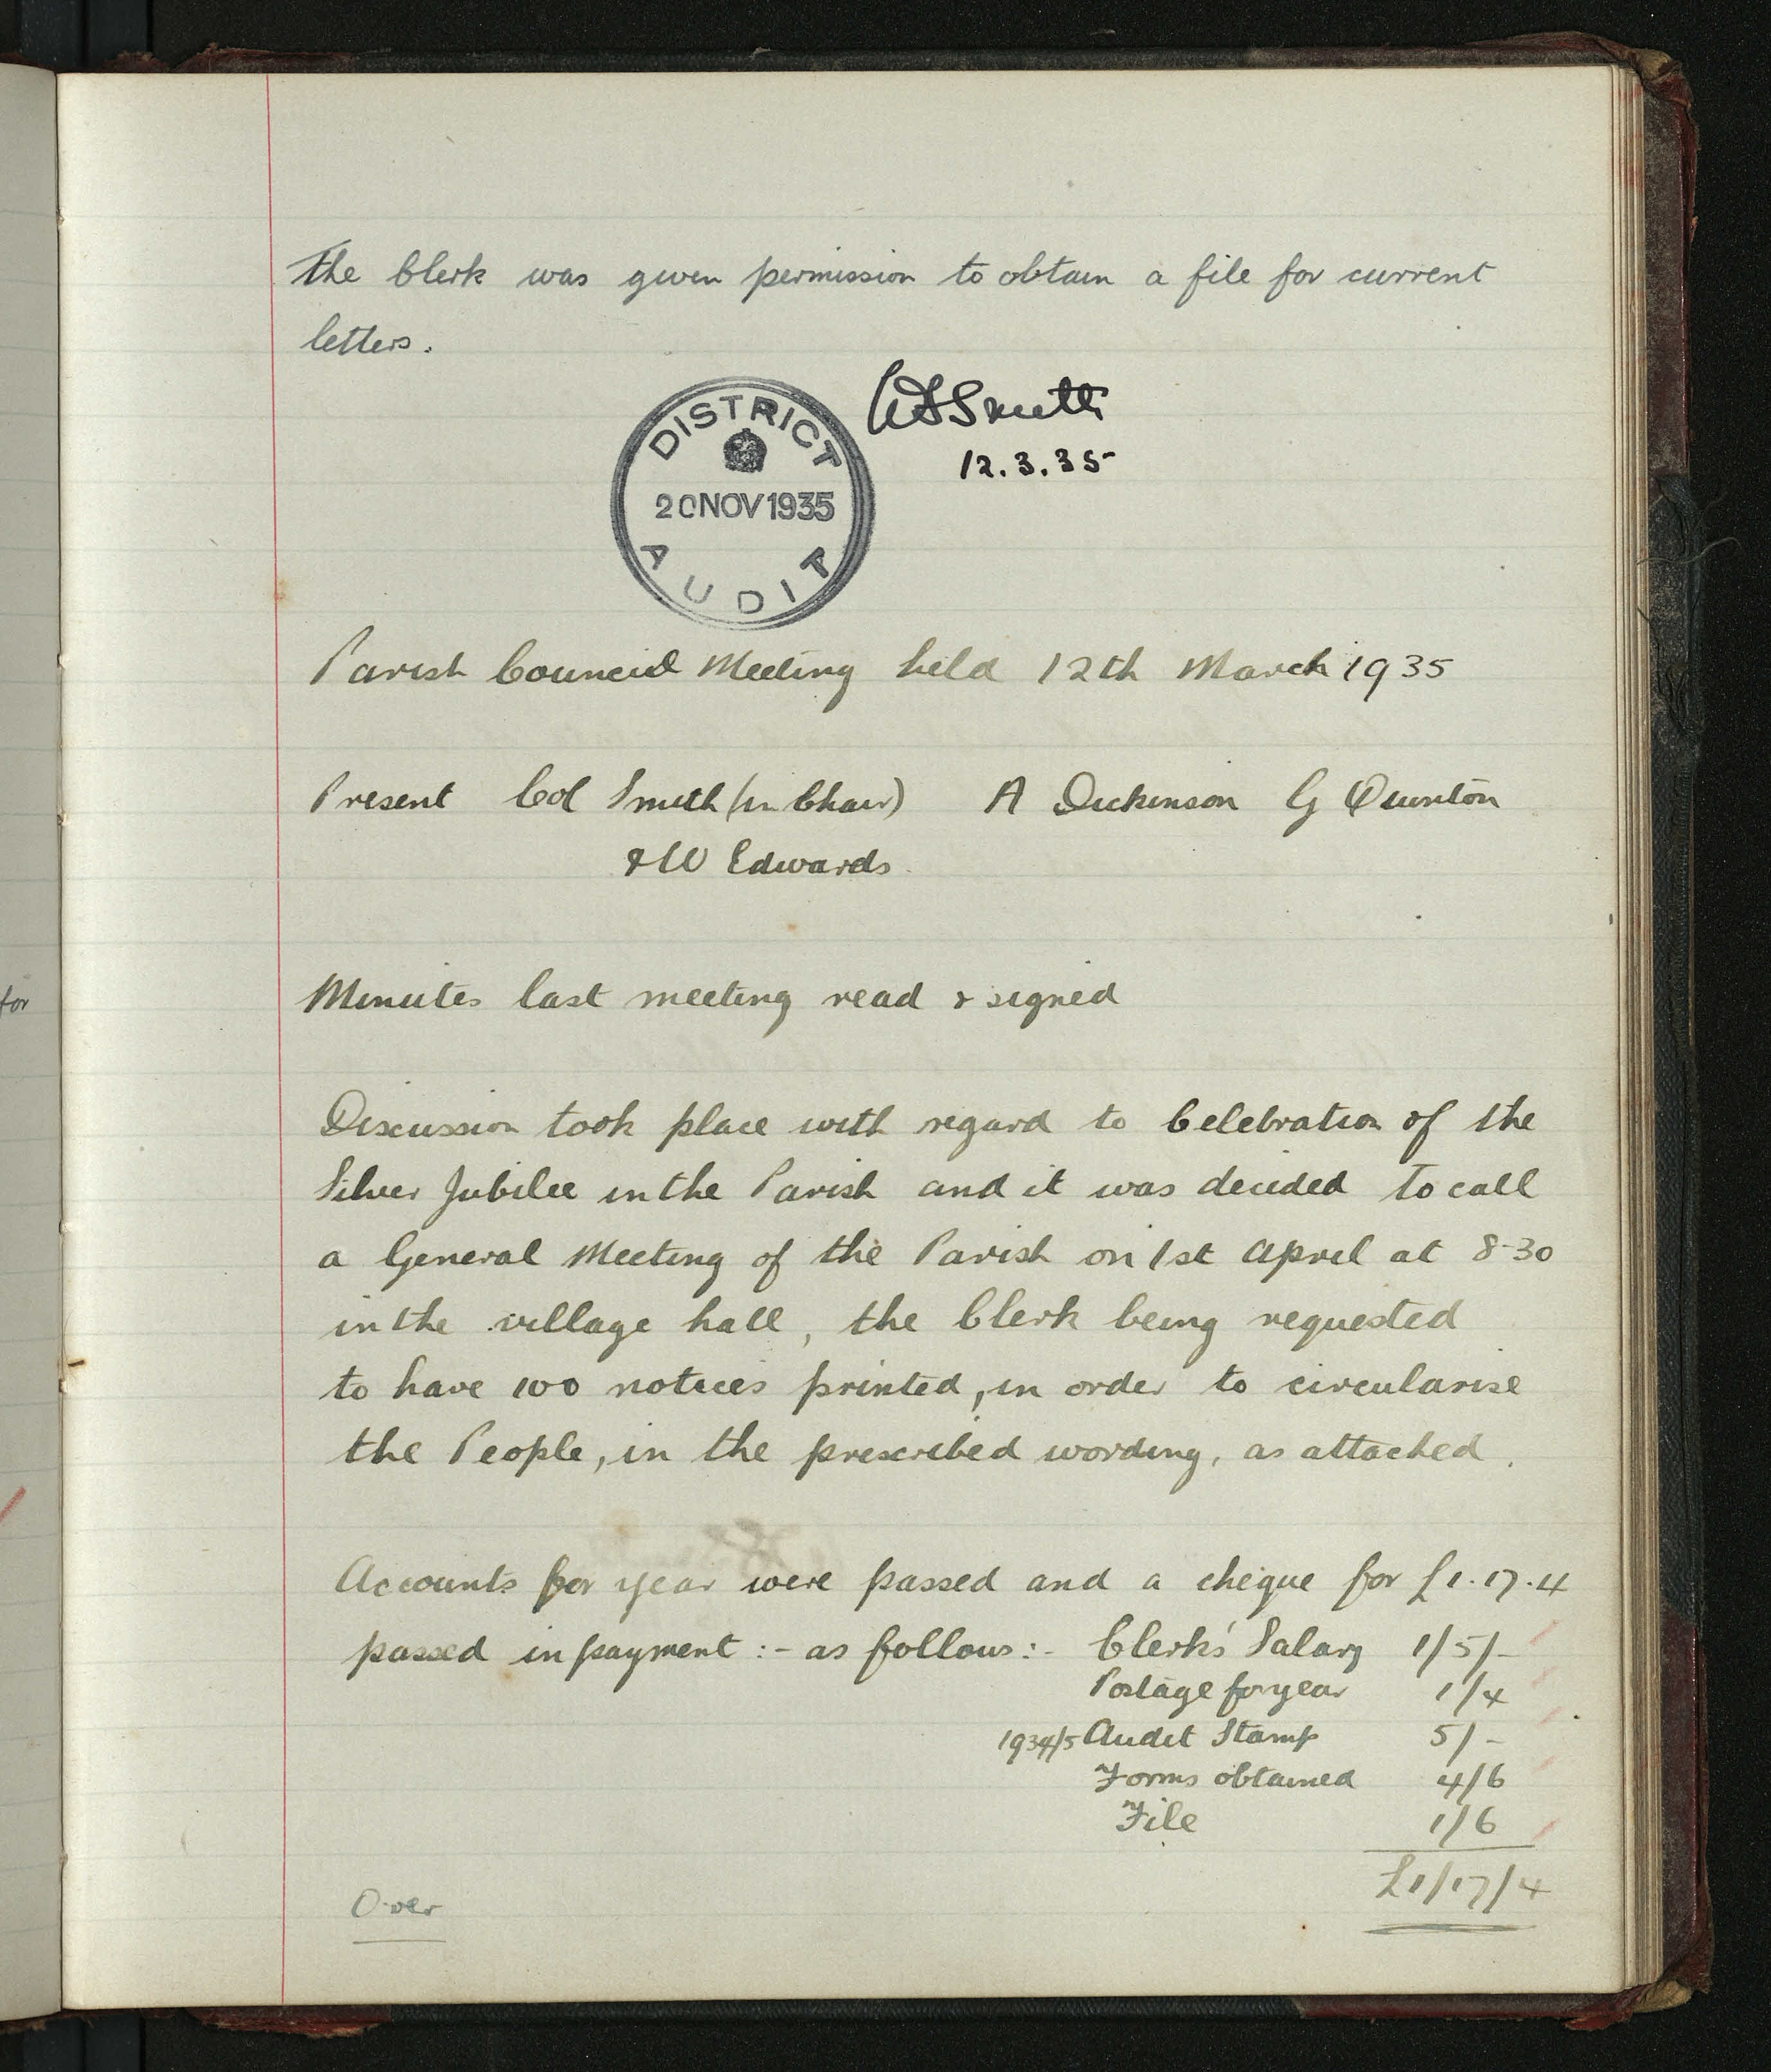 The Clerk was given permission to obtain a file for current
letters.
DISTRICT
20 NOV 1935
AUDIT
Smith
12.3.35
Parish Council Meeting held 12th March 1935
Present Col Smith (in Chair) A Dickinson G Quinton
& W Edwards
Minutes last meeting read & signed
Discussion took place with regard to Celebration of the
Silver Jubilee in the Parish and it was decided to call
a General Meeting of the Parish on 1st April at 8-30
in the village hall, the Clerk being requested
to have 100 notices printed, in order to circularise
the People, in the prescribed wording, as attached.
Accounts for year were passed and a cheque for £1.17.4
passed in payment :- as follows :- Clerk's Salary 1/5/-
Postage for year 1/4
1934/5 Audit Stamp 5/-
Forms obtained 4/6
File 1/6
£1/17/4
Over
for